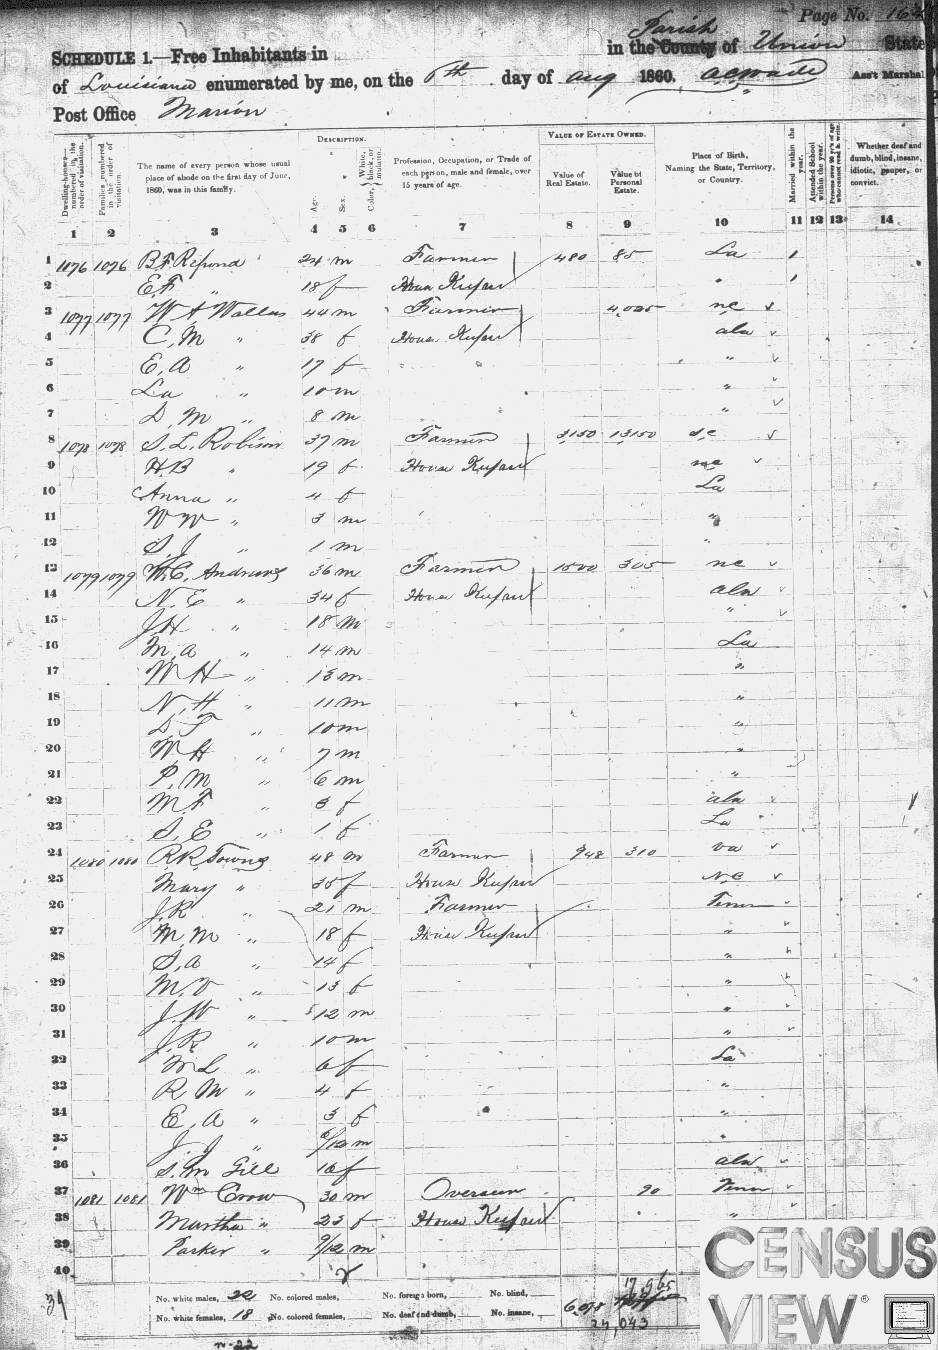 Page No. 164
SCHEDULE 1.—Free Inhabitants in
Parish
in the County of Union State
of Louisiana enumerated by me, on the 6th day of Aug 1860.
Ass't Marshal
Post Office Marion
DESCRIPTION.
VALUE OF ESTATE OWNED.
Dwelling-houses—numbered in the order of visitation.
Families numbered in the order of visitation.
The name of every person whose usual place of abode on the first day of June, 1860, was in this family.
Age.
Sex.
Color, White, black, or mulatto.
Profession, Occupation, or Trade of each person, male and female, over 15 years of age.
Value of Real Estate.
Value of Personal Estate.
Place of Birth, Naming the State, Territory, or Country.
Married within the year.
Attended School within the year.
Persons over 20 y'rs of age who cannot read & write.
Whether deaf and dumb, blind, insane, idiotic, pauper, or convict.
1 2 3 4 5 6 7 8 9 10 11 12 13 14
1 1076 1076 B.F. Repond 24 m Farmer 480 85 La 1
2 E.F. " 18 f House Keeper " 1
3 1077 1077 W A Wallas 44 m Farmer nc
4 C. M " 38 f House Keeper ala
5 E, A " 17 f "
6 La " 10 m "
7 D. M " 8 m "
8 1078 1078 S. L. Robison 37 m Farmer 3150 13150 s,c
9 H.B " 19 f House Keeper
10 Anna " 4 f La
11 W W " 3 m "
12 S. J " 1 m "
13 1079 1079 W.C. Andrews 36 m Farmer 1500 305 nc
14 N. E " 34 f House Keeper ala
15 J.H " 18 m "
16 M. a " 14 m La
17 W H " 13 m "
18 N. H " 11 m "
19 D F " 10 m "
20 W H " 7 m "
21 P. M " 6 m "
22 M. F " 3 f ala
23 S. E " 1 f La
24 1080 1080 R.R. Towns 48 m Farmer 948 310 va
25 Mary " 35 f House Keeper N,C
26 J.R " 21 m Farmer Tenn
27 M. M " 18 f House Keeper "
28 S, a " 14 f "
29 M. V " 13 f "
30 J. W " 12 m "
31 J. R " 10 m "
32 M L " 6 f La
33 R M " 4 f "
34 E, A " 3 f "
35 J. J " /12 m "
36 S. M Gill 16 f ala
37 1081 1081 Wm Crow 30 m Overseer 90 Tenn
38 Martha " 23 f House Keeper "
39 Parker " 9/12 m
40
No. white males, 22 No. colored males, No. foreign born, No. blind,
No. white females, 18 No. colored females, No. deaf and dumb, No. insane,
17,965
24,043
CENSUS
VIEW®